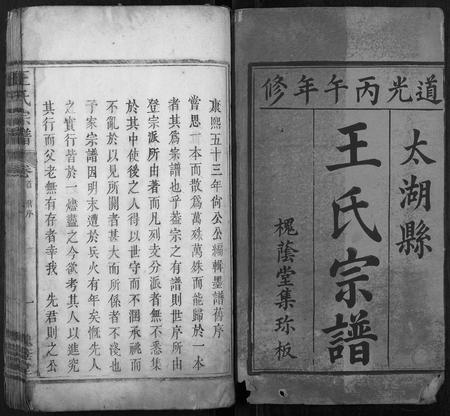 道光丙午年修
太湖縣
王氏宗譜
槐蔭堂集珎板
康熙五十三年尙公公編輯墨譜舊序
嘗思一本而散爲萬殊萬殊而能歸於一本
者其爲宗譜也乎葢宗之有譜則世序所由
登宗派所由著而凡列支分派者無不悉集
於其中使後之人得以世守而不溷承祧而
不亂於以見所關者甚大而所係者不淺也
予家宗譜因明末遭於兵火有年矣慨先人
之實行昔於一燼盡之今欲考其人以進究
其行而父老無有存者幸我 先君則之公
王氏宗譜 卷首 舊序 一